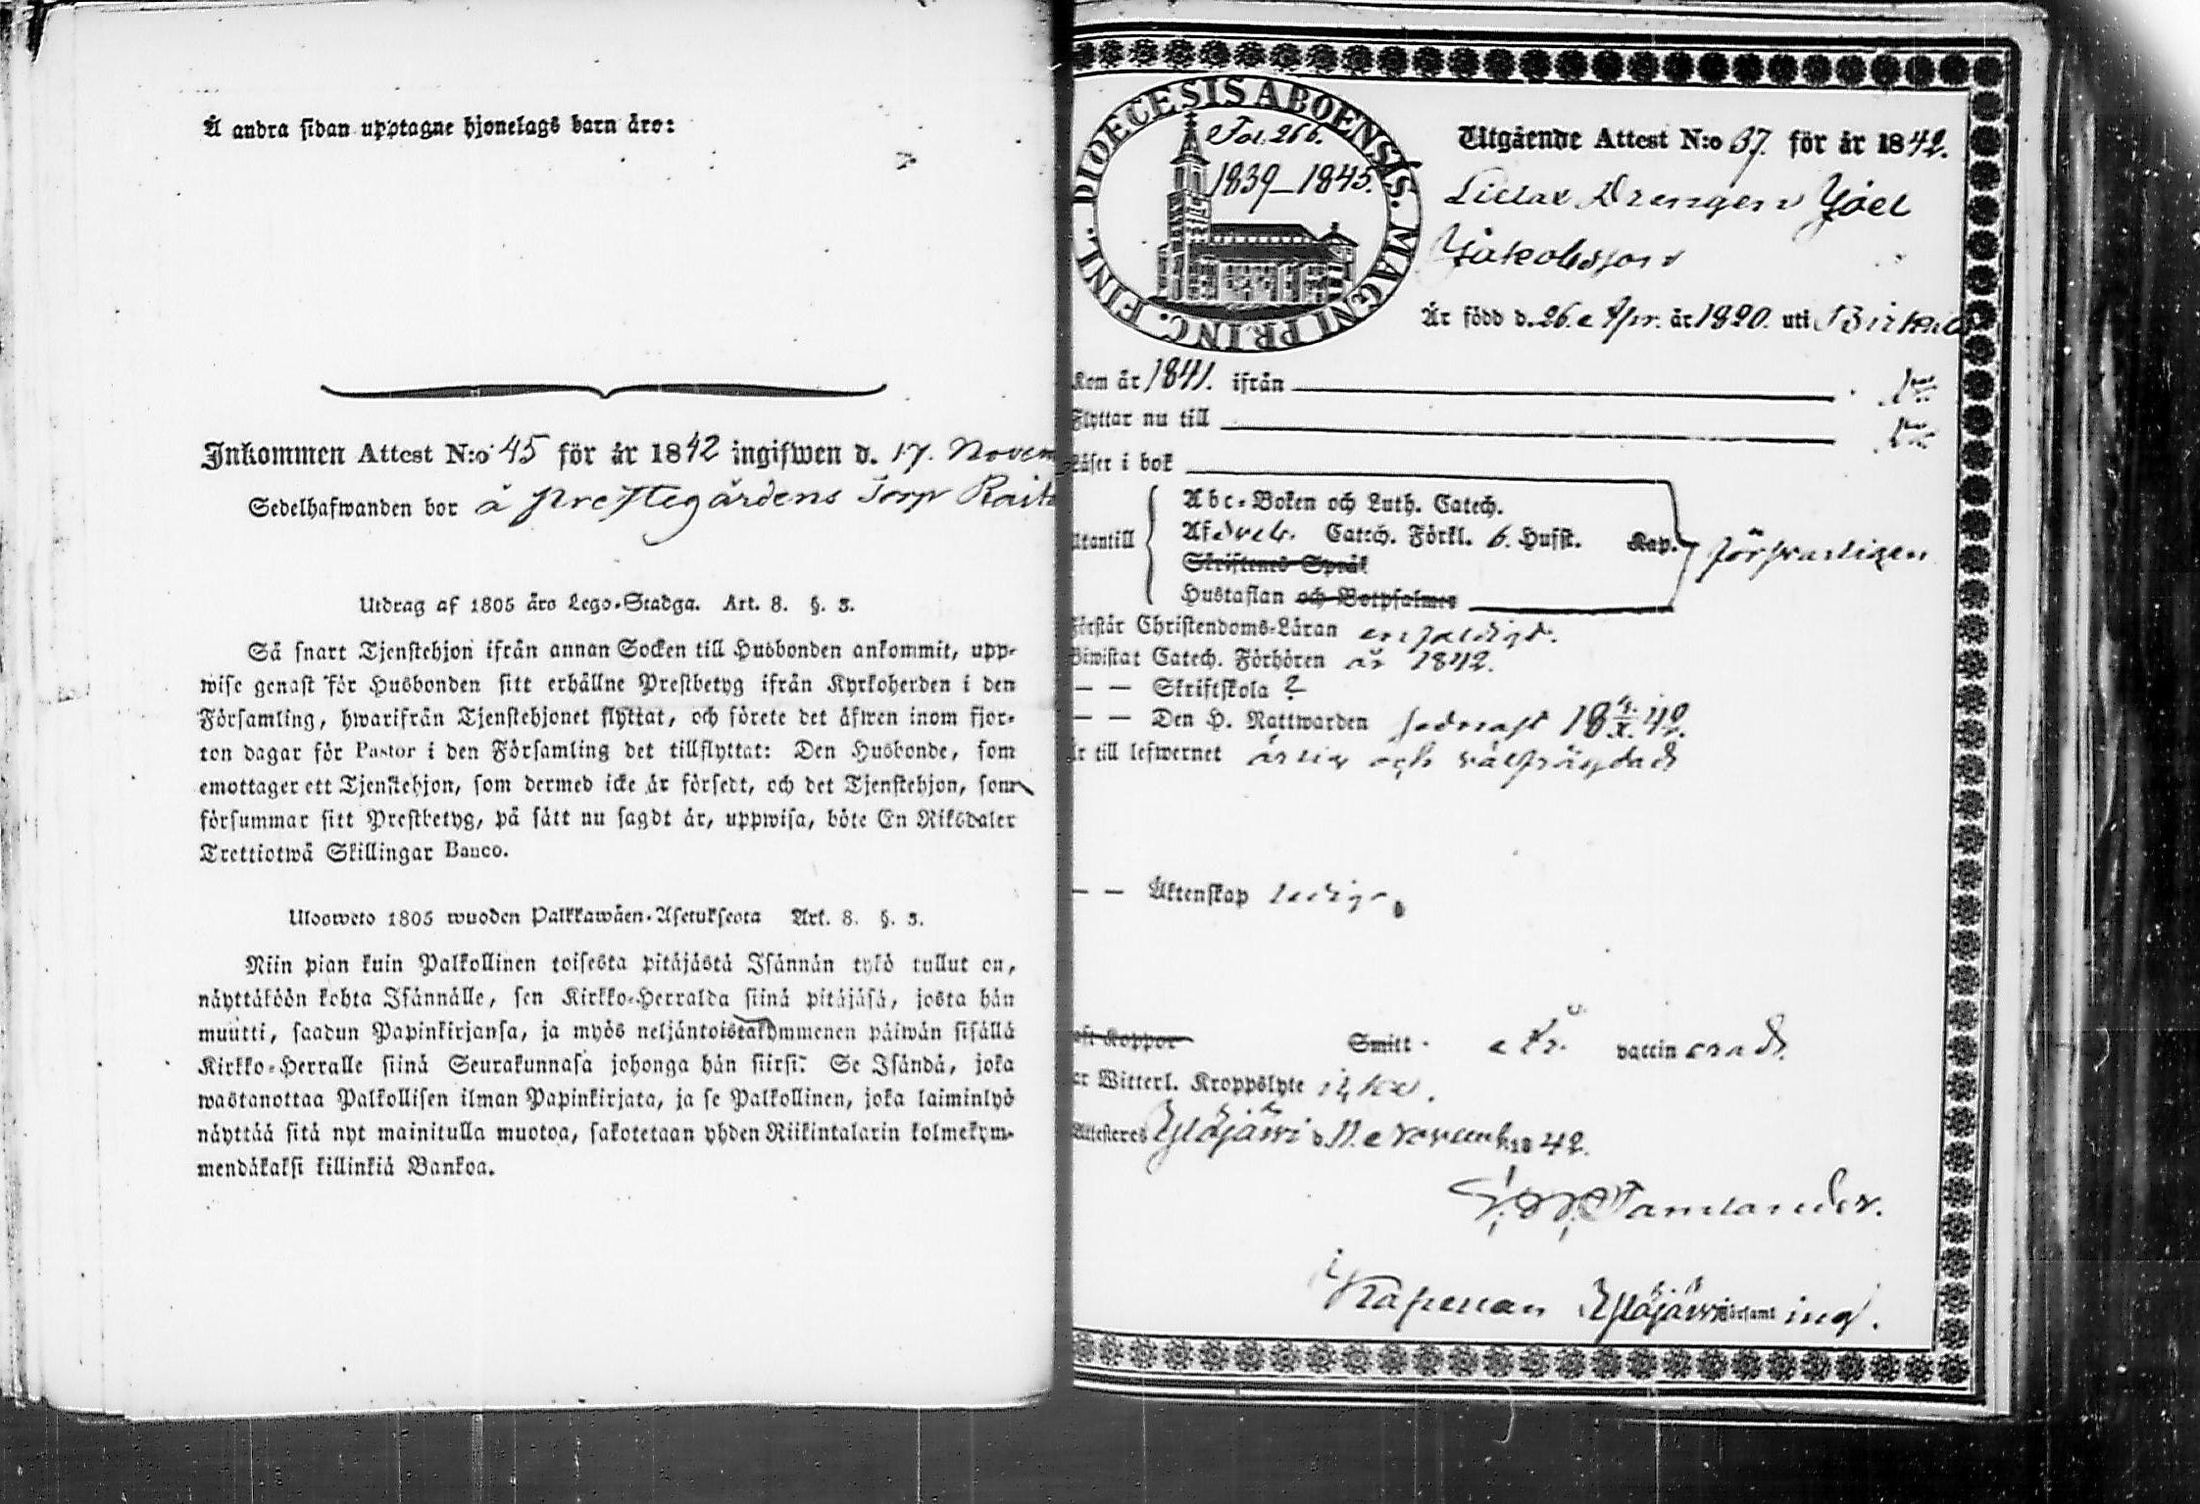 Å andra sidan upptagne hjonelags barn äro:
Inkommen Attest N:o 45 för år 1842 ingifwen d. 17. Novem
Sedelhafwanden bor å Prestegårdens Torp
Utdrag af 1805 års Lego-Stadga. Art. 8. §. 3.
Så snart Tjenstehjon ifrån annan Socken till Husbonden ankommit, upp-
wise genast för Husbonden sitt erhållne Prestbetyg ifrån Kyrkoherden i den
Församling, hwarifrån Tjenstehjonet flyttat, och förete det äfwen inom fjor-
ton dagar för Pastor i den Församling det tillflyttat: Den Husbonde, som
emottager ett Tjenstehjon, som dermed icke är försedt, och det Tjenstehjon, som
försummar sitt Prestbetyg, på sätt nu sagdt är, uppwisa, böte En Riksdaler
Trettiotwå Skillingar Banco.
Ulosweto 1805 wuoden Palkkawäen-Asetuksesta Art. 8. §. 3.
Niin pian kuin Palkollinen toisesta pitäjästä Isännän tykö tullut on,
näyttäköön kohta Isännälle, sen Kirkko-Herralda siinä pitäjäsä, josta hän
muutti, saadun Papinkirjansa, ja myös neljäntoistakymmenen päiwän sisällä
Kirkko-Herralle siinä Seurakunnasa johonga hän siirsi: Se Isändä, joka
wastanottaa Palkollisen ilman Papinkirjata, ja se Palkollinen, joka laiminlyö
näyttää sitä nyt mainitulla muotoa, sakotetaan yhden Riikintalarin kolmekym-
mendäkaksi killinkiä Bankoa.
DIOECESIS ABOENSIS. MAGNI PRINC. FINL.
Fol. 266.
1839–1845.
Utgående Attest N:o 37. för år 1842.
Drengen Joel
Jakobsson
Är född d. 26. Apr. år 1820. uti Birkala
Kom år 1841. ifrån
Flyttar nu till
Läser i bok
Utantill
Abc-Boken och Luth. Catech.
Af Catech. Förkl. 6. Hufst. Kap.
Skriftenes Språk
Hustaflan och Botpsalmer
försvarligen
Förstår Christendoms-Läran enfaldigt.
Biwistat Catech. Förhören år 1842.
— — Skriftskola ?
— — Den H. Nattwarden sednast 18 4/X 42.
Är till lefwernet ärlig och välfrägdad
— — Äktenskap ledig.
aft Koppor Smitt. är vaccinerad.
ar Witterl. Kroppslyte icke.
Attesteras Ylöjärvi d. 11. November 1842.
Tamlander.
i
Kapellan Ylöjärvi Församling.